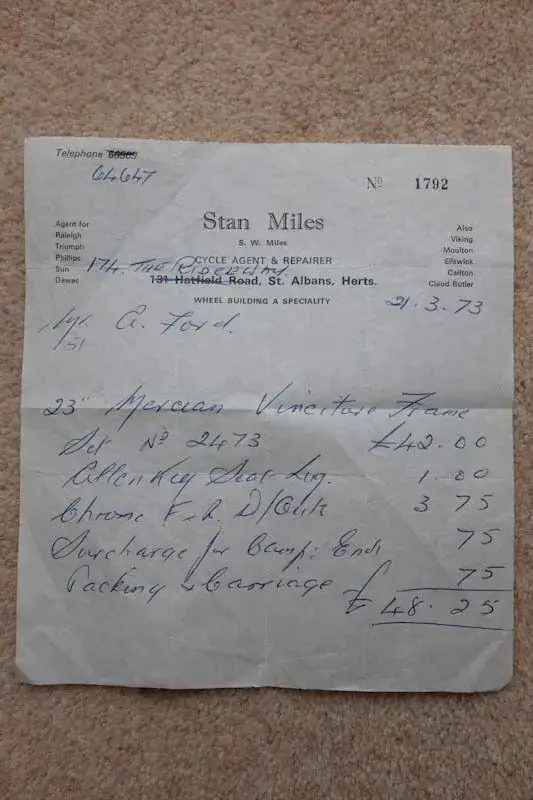 Telephone 56969
64647
Nº 1792
Stan Miles
S. W. Miles
CYCLE AGENT & REPAIRER
174. THE RIDGEWAY.
131 Hatfield Road, St. Albans, Herts.
WHEEL BUILDING A SPECIALITY
Agent for
Raleigh
Triumph
Phillips
Sun
Dawes
Also
Viking
Moulton
Elswick
Carlton
Claud Butler
21.3.73
Mr. A. Ford.
23" Mercian Vincitore Frame
Nº 2473 £42.00
Allen Key Seat Lug. 1.00
Chrome F&R. D/Outs 3 75
Surcharge for Camp: Ends 75
Packing & Carriage 75
£ 48.25